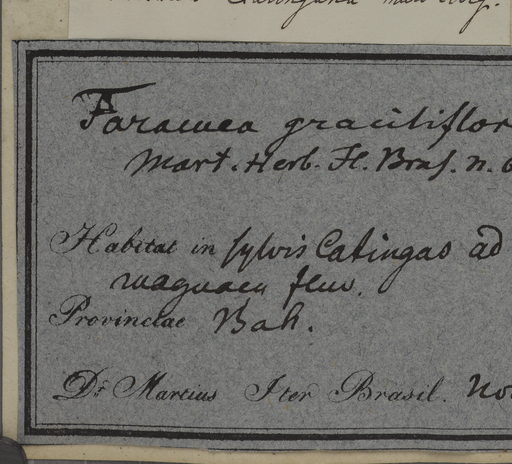 Faramea graciliflor
Mart. Herb. Fl. Bras. n. 6
Habitat in sylvis Catingas ad
fluv.
Provinciae Bah.
Dr. Martius Iter Brasil. No